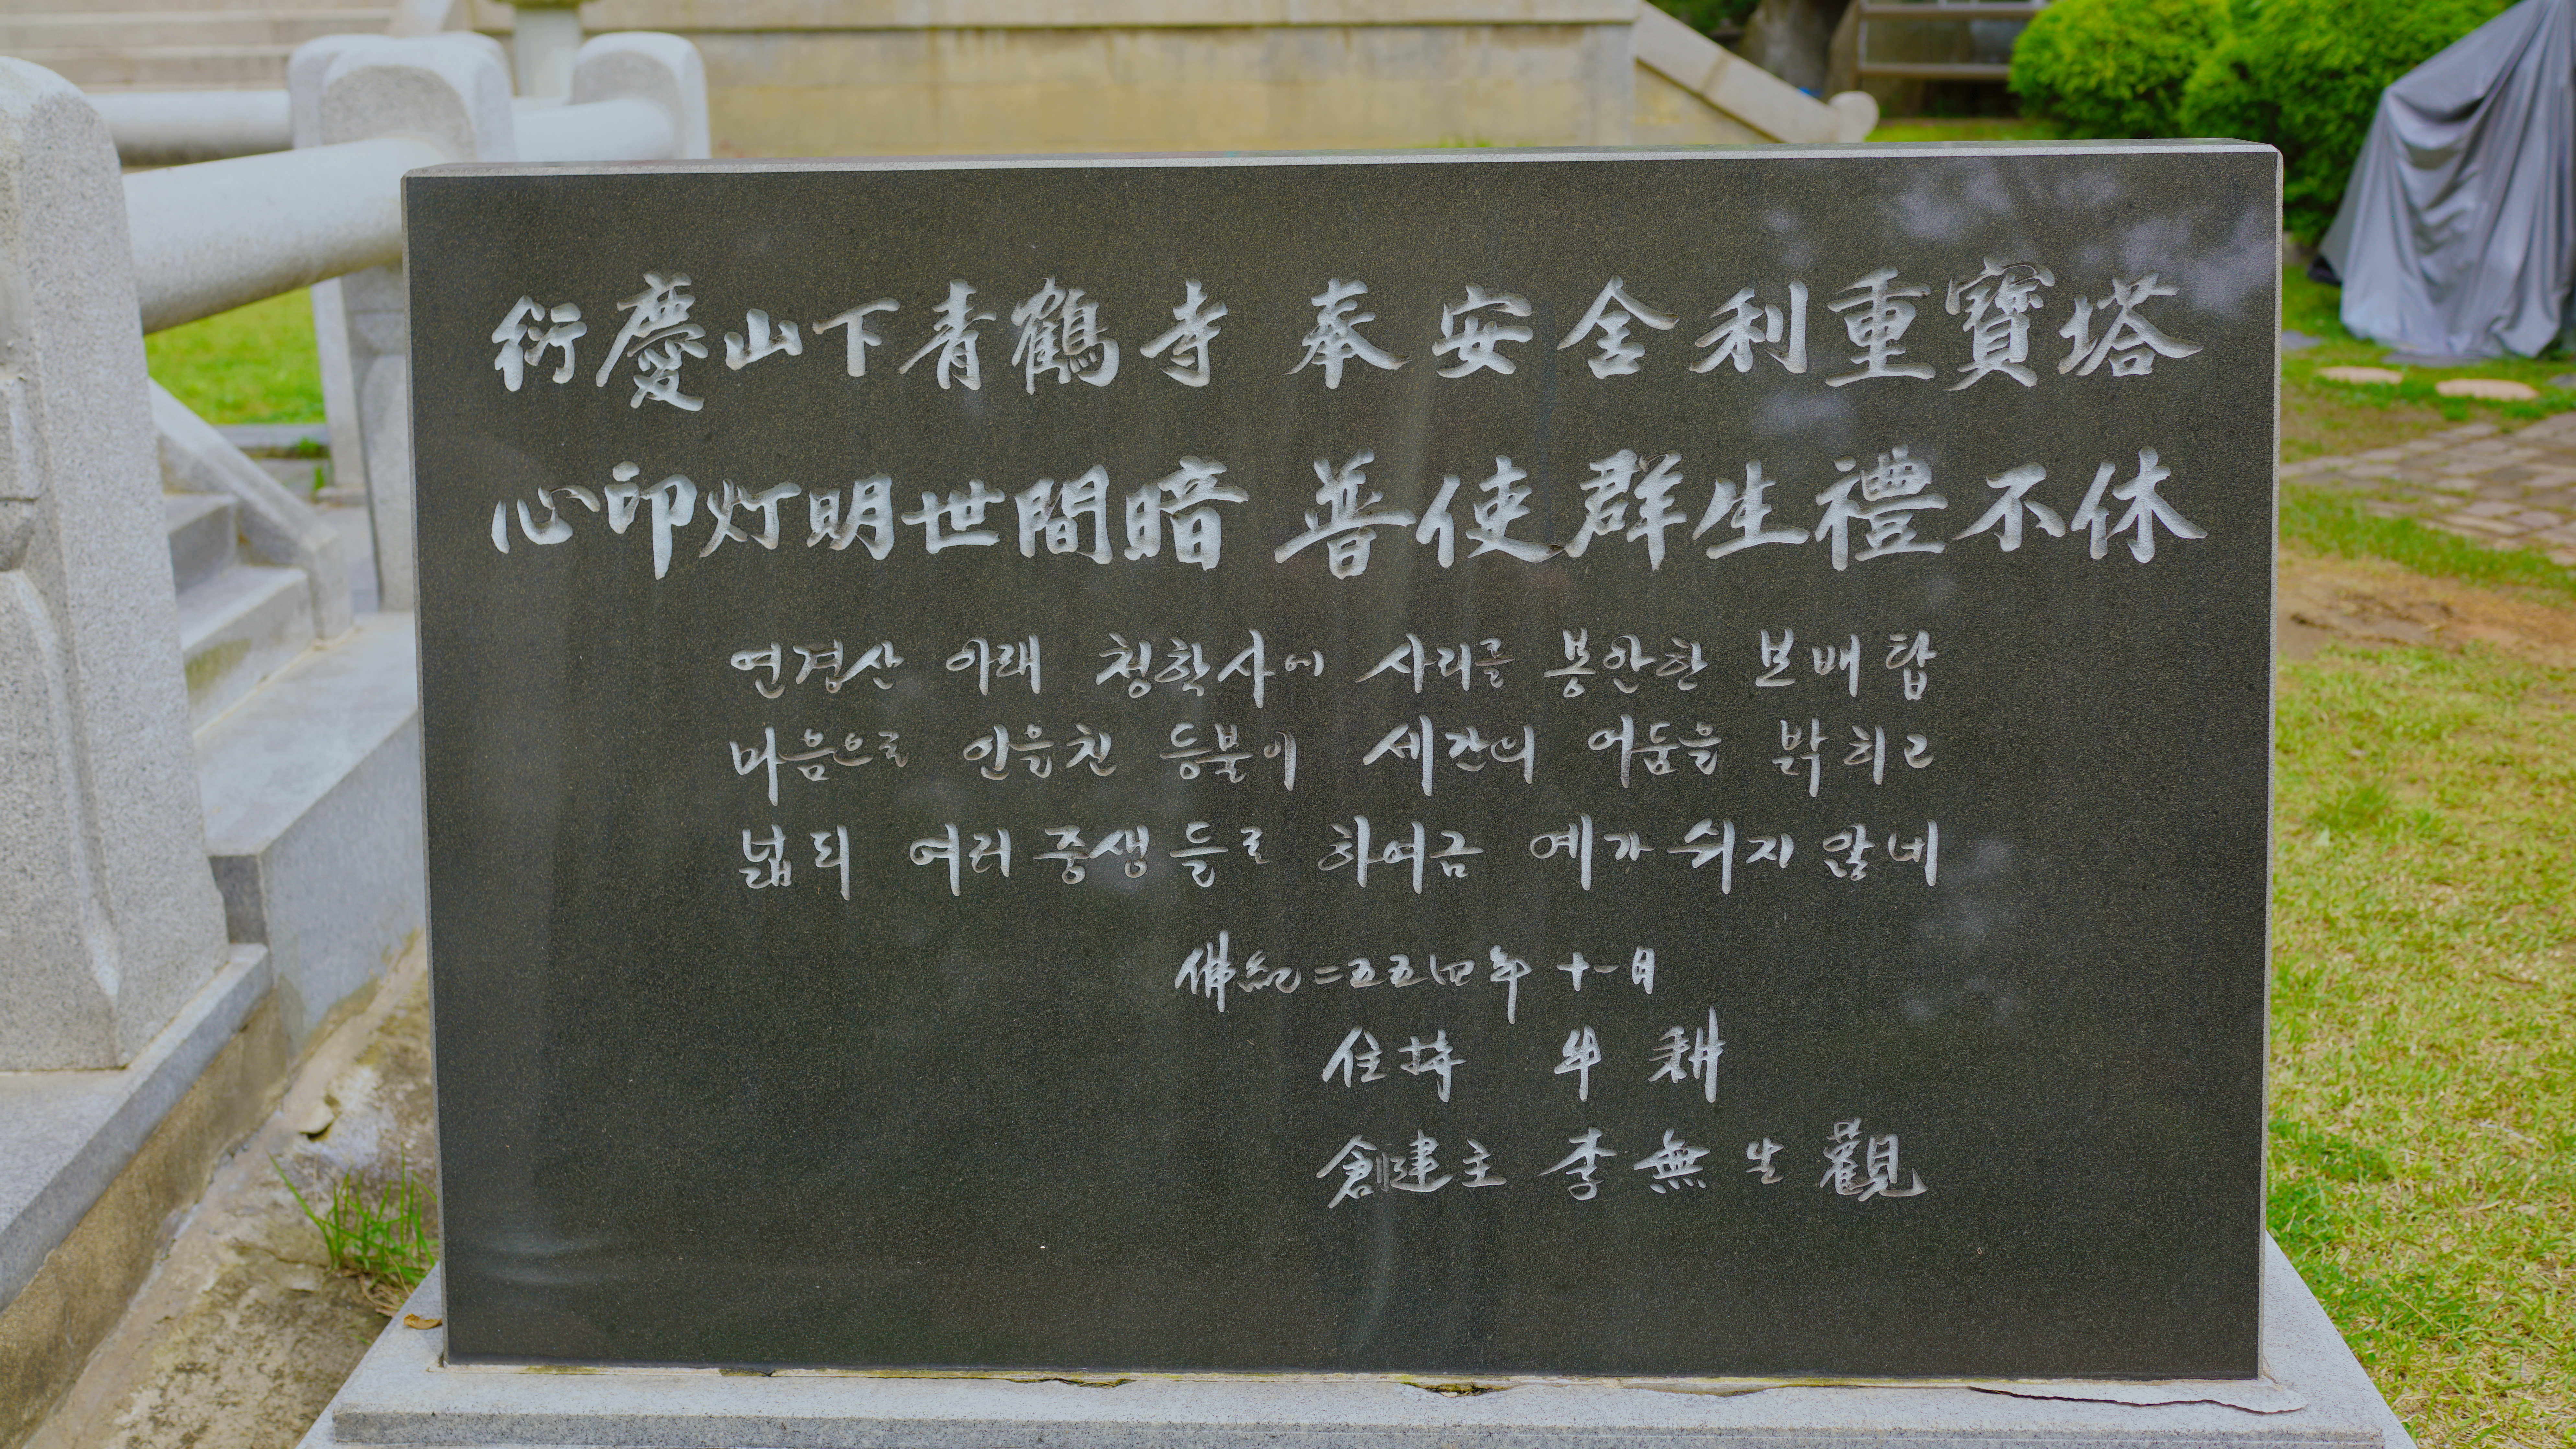 衍慶山下青鶴寺 奉安舍利重寶塔
心印灯明世間暗 普使群生禮不休
연경산 아래 청학사에 사리를 봉안한 보배탑
마음으로 인을친 등불이 세간의 어둠을 밝히고
넓되 여러 중생들로 하여금 예가 쉬지 않네
佛紀二五五四年 十一月
住持 牛耕
創建主 李無生觀